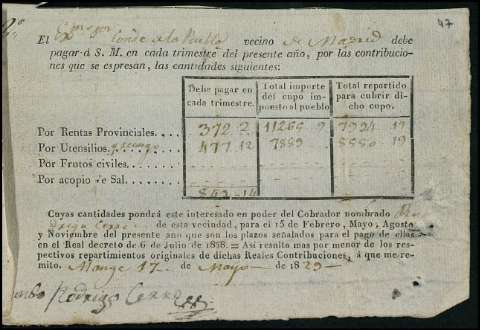 47
El Exmo Sor Conde de la Puebla vecino de Madrid debe
pagar á S. M. en cada trimestre del presente año, por las contribucio-
nes que se espresan, las cantidades siguientes:
Debe pagar en cada trimestre. Total importe del cupo impuesto al pueblo Total repartido para cubrir dicho cupo.
Por Rentas Provinciales.... 372.2 11266 7994 17
Por Utensilios 477.12 7889 8580 19
Por Frutos civiles.....
Por acopio de Sal....
849-14
Cuyas cantidades pondrá este interesado en poder del Cobrador nombrado
Diego de esta vecindad, para el 15 de Febrero, Mayo, Agosto
y Noviembre del presente ano que son los plazos señalados para el pago de ellas
en el Real decreto de 6 de Julio de 1828. = Asi resulta mas por menor de los res-
pectivos repartimientos originales de dichas Reales Contribuciones, á que me re-
mito. 17 de Mayo de 1829
Rodrigo